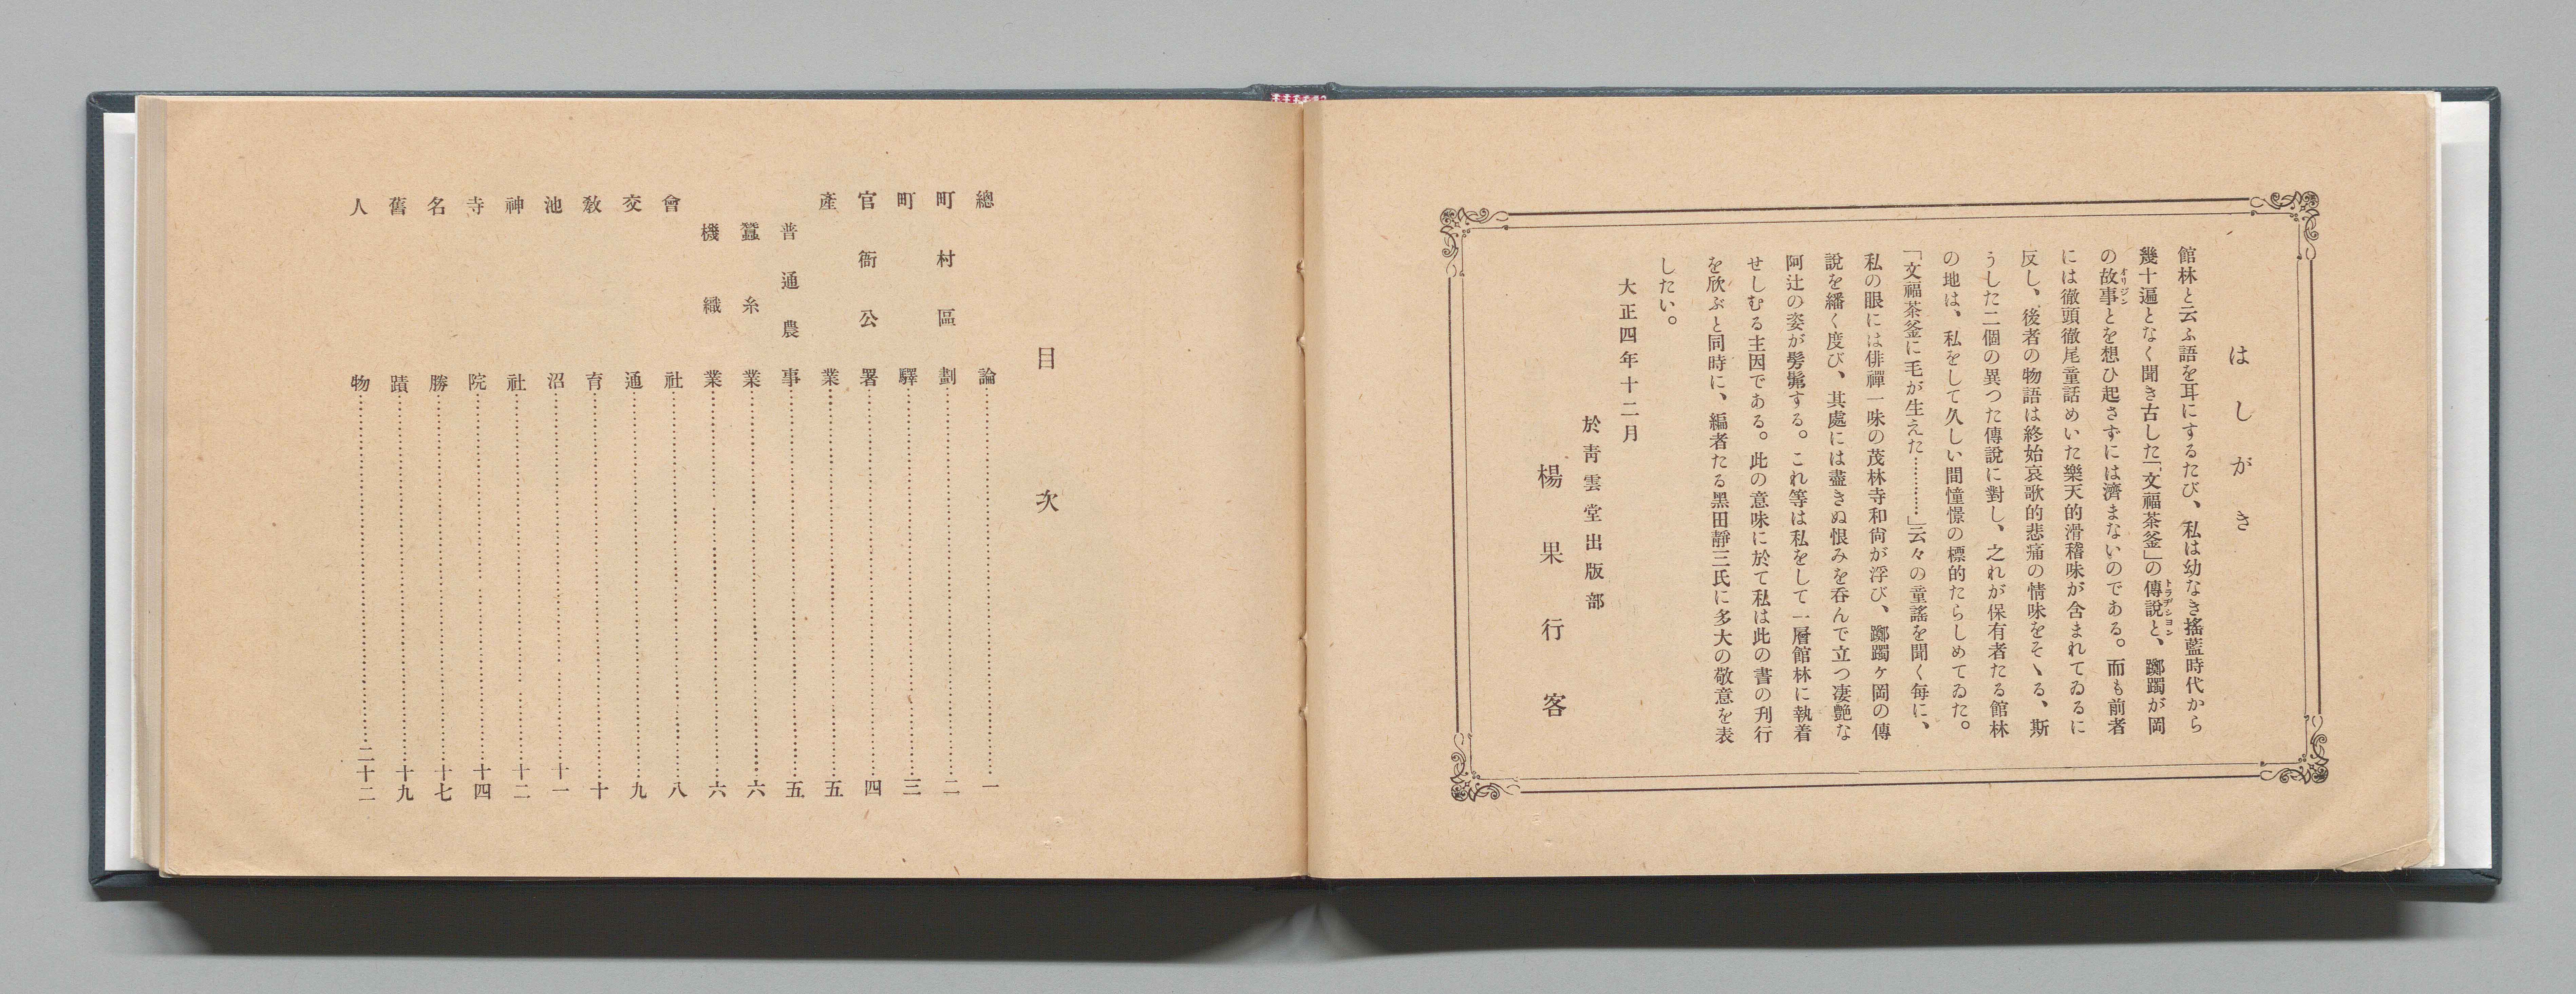 はしがき
館林と云ふ語を耳にするたび、私は幼なき搖藍時代から
幾十遍となく聞き古した「文福茶釜」の傳說と、躑躅が岡
トラヂシヨン
の故事とを想ひ起さずには濟まないのである。而も前者
オリジン
には徹頭徹尾童話めいた樂天的滑稽味が含まれてゐるに
反し、後者の物語は終始哀歌的悲痛の情味をそゝる、斯
うした二個の異つた傳說に對し、之れが保有者たる館林
の地は、私をして久しい間憧憬の標的たらしめてゐた。
「文福茶釜に毛が生えた…………」云々の童謠を聞く每に、
私の眼には俳禪一味の茂林寺和尙が浮び、躑躅ヶ岡の傳
說を繙く度び、其處には盡きぬ恨みを呑んで立つ凄艶な
阿辻の姿が髣髴する。これ等は私をして一層館林に執着
せしむる主因である。此の意味に於て私は此の書の刋行
を欣ぶと同時に、編者たる黑田靜三氏に多大の敬意を表
したい。
大正四年十二月
於靑雲堂出版部
楊果行客
目次
總論……一
町村區劃……二
町驛……三
官衙公署……四
產業……五
普通農事……五
蠶糸業……六
機織業……六
會社……八
交通……九
敎育……十
池沼……十一
神社……十二
寺院……十四
名勝……十七
舊蹟……十九
人物……二十二